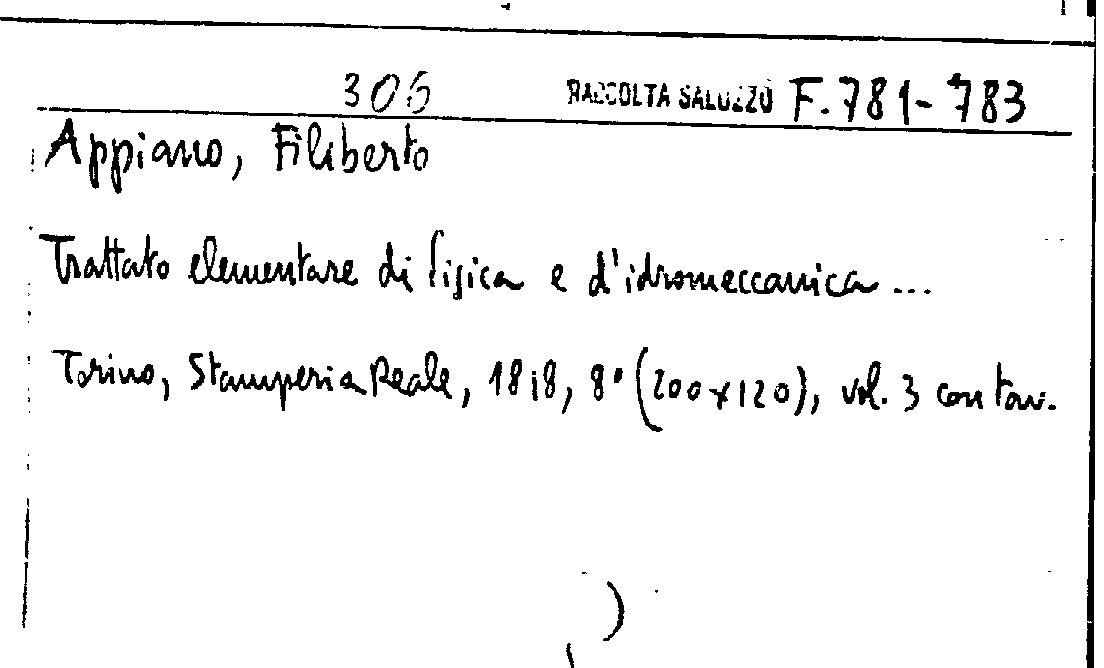 306 RACCOLTA SALUZZO F.781-783
Appiano, Filiberto
Trattato elementare di fisica e d'idromeccanica ...
Torino, Stamperia Reale, 1818, 8° (200x120), vol. 3 con tav.